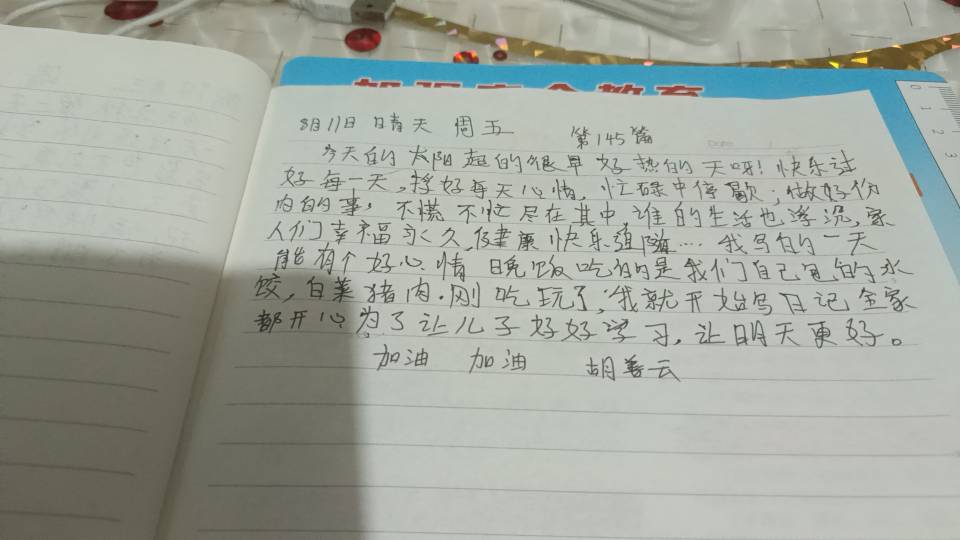 安全教育
8月11日 晴天 周五 第145篇
今天的太阳起的很早好热的天呀！快乐过
好每一天，将好每天心情，忙碌中停歇；做好份
内的事，不慌不忙尽在其中，谁的生活也浮沉，家
人们幸福永久，健康快乐追随…… 我写的一天
能有个好心情 晚饭吃的是我们自己包的水
饺，白菜猪肉．刚吃玩了，我就开始写日记 全家
都开心 为了让儿子好好学习，让明天更好。
加油 加油 胡善云
0 1 2 3